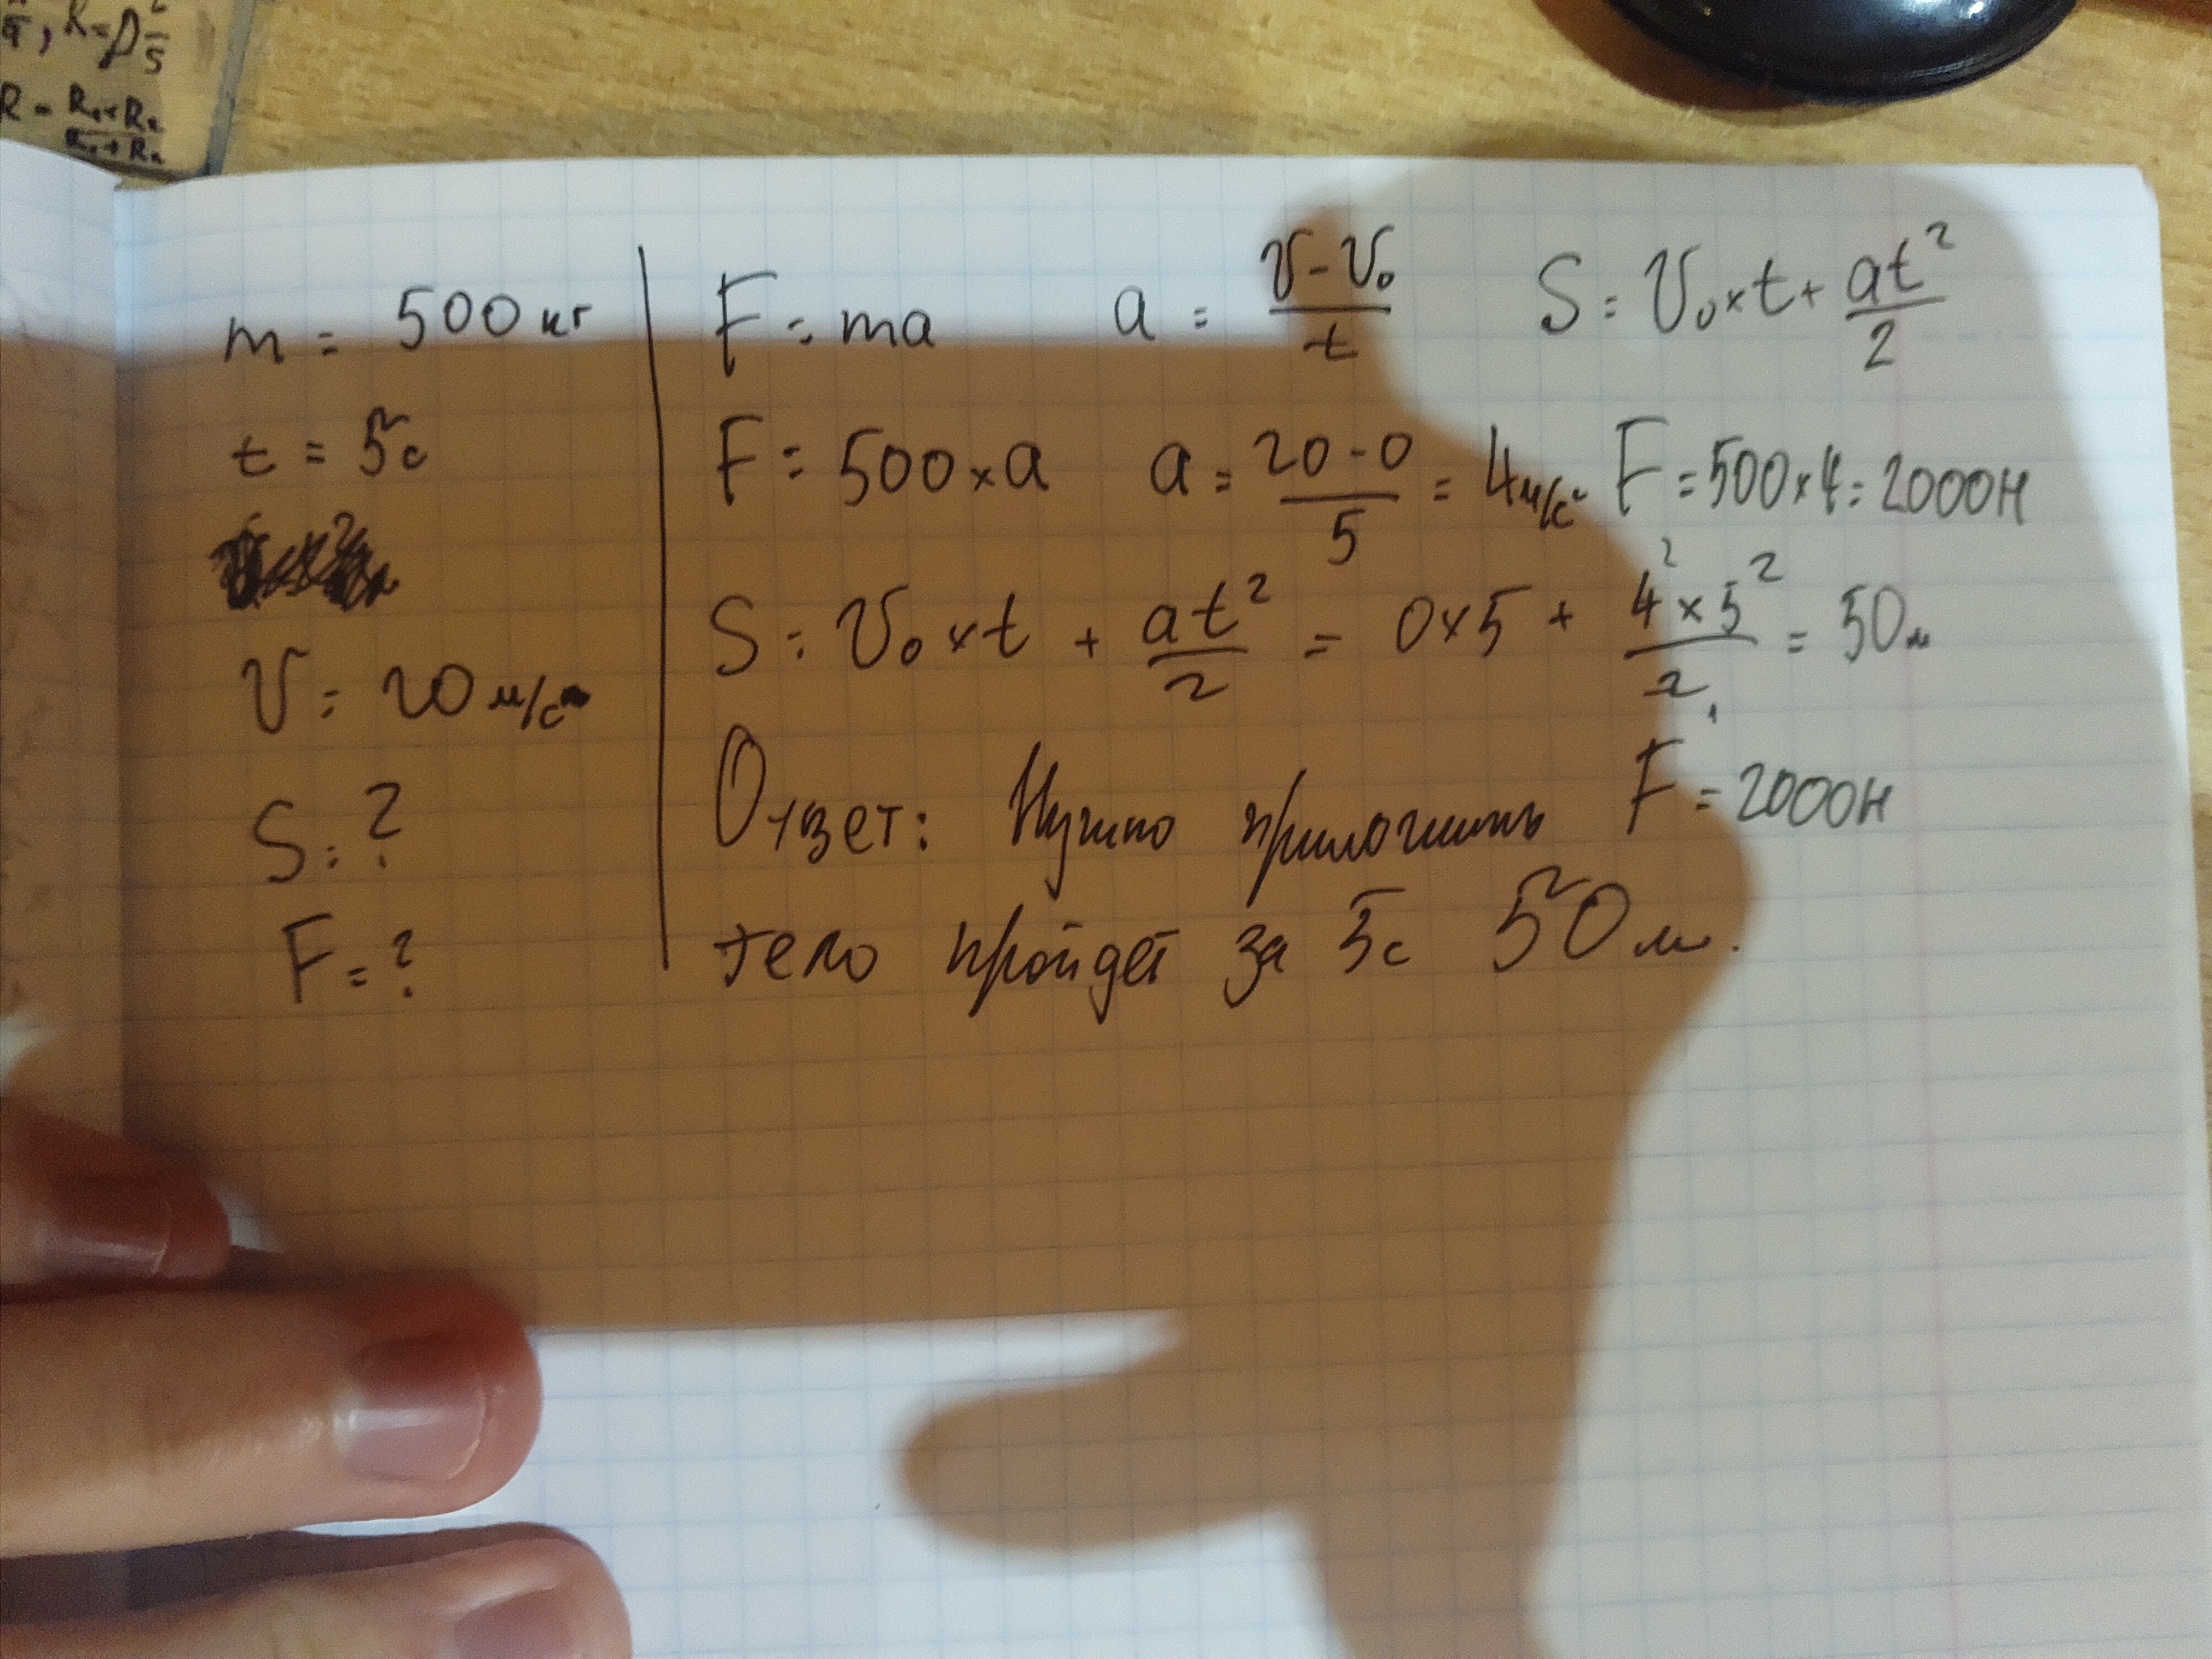 R = ρ l/S
R = R₁×R₂/R₁+R₂
m = 500 кг
t = 5с
V = 20 м/с
S = ?
F = ?
F = ma a = V-V₀/t S = V₀×t+ at²/2
F = 500×a a = 20-0/5 = 4м/с² F = 500×4 = 2000Н
S = V₀×t + at²/2 = 0×5 + 4²×5²/2 = 50м
Ответ: Нужно приложить F = 2000Н
тело пройдет за 5с 50м.